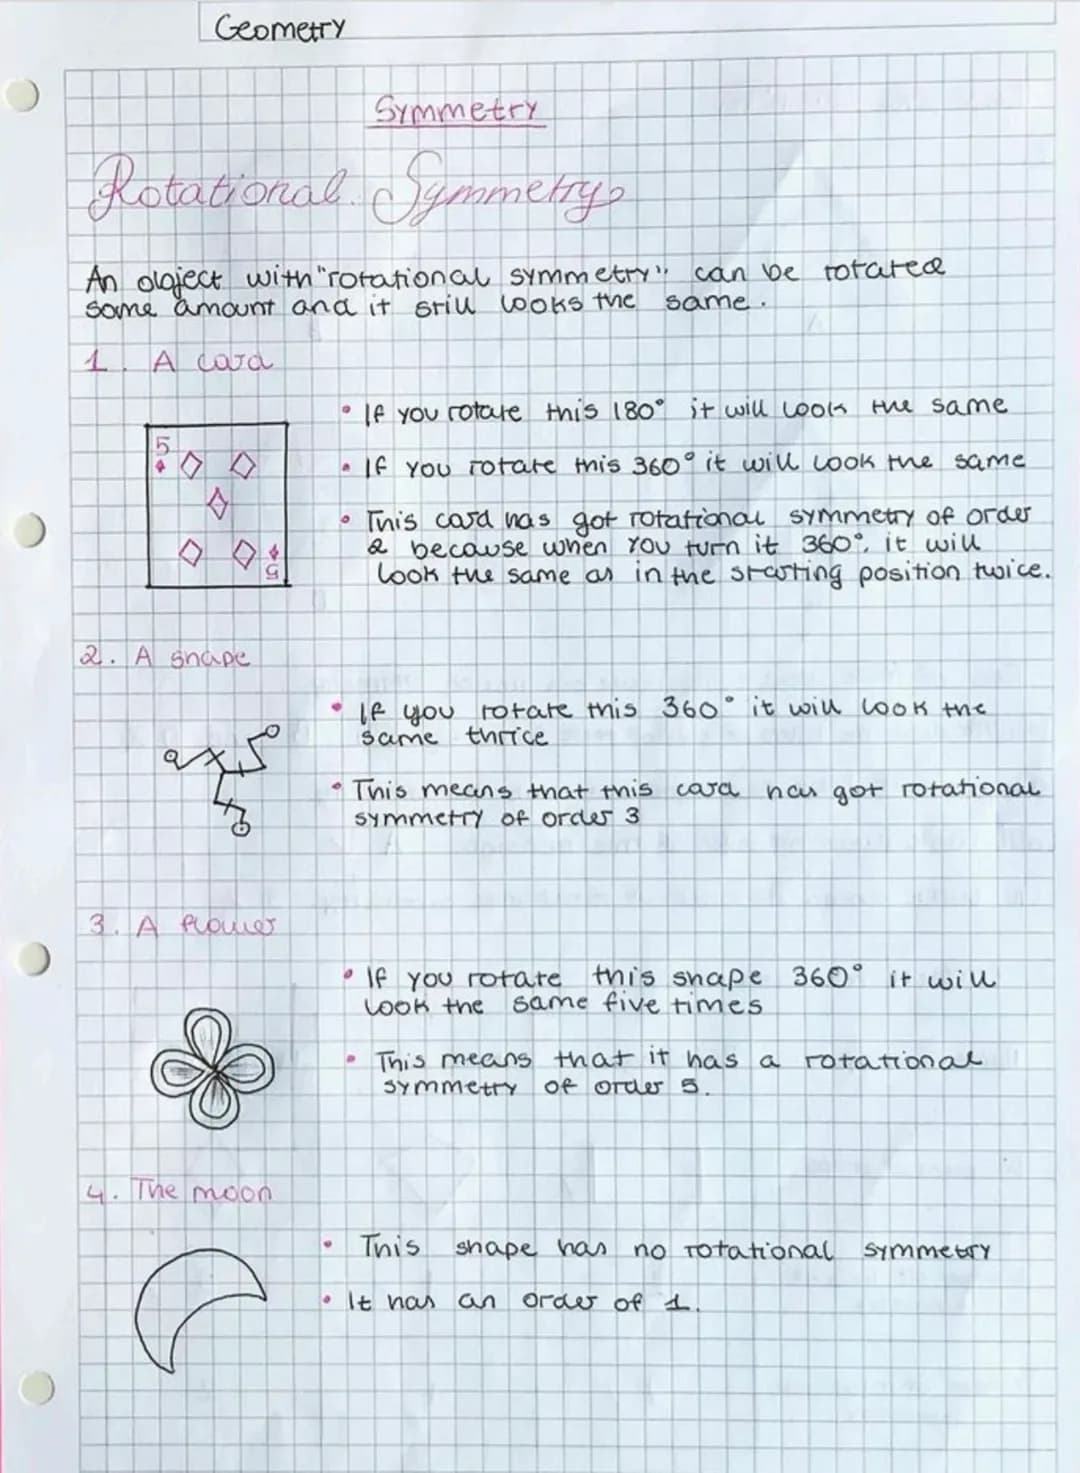 Geometry
Symmetry
Rotational Symmetry
An object with "rotational symmetry" can be rotated
some amount and it still looks the same.
1. A card
5
5
• If you rotate this 180° it will look the same
• If you rotate this 360° it will look the same
• This card has got rotational symmetry of order
2 because when you turn it 360°, it will
look the same as in the starting position twice.
2. A shape
• If you rotate this 360° it will look the
same thrice
• This means that this card has got rotational
symmetry of order 3
3. A flower
• If you rotate this shape 360° it will
look the same five times
• This means that it has a rotational
symmetry of order 5.
4. The moon
• This shape has no rotational symmetry
• It has an order of 1.